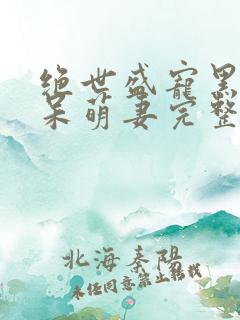 绝世盛宠黑
呆萌妻完整
北海秦阳
未经同意禁止转载